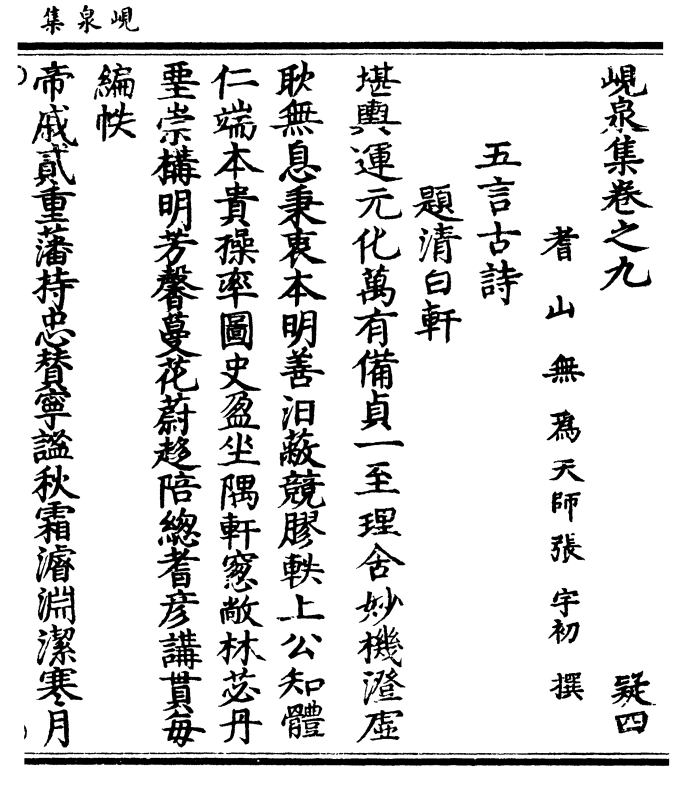 峴泉集
峴泉集卷之九 疑四
耆山無爲天師張宇初撰
五言古詩
題清白軒
堪輿運元化萬有備貞一至理含妙機澄虛
耿無息秉衷本明善汨蔽競膠軼上公知體
仁端本貴操率圖史盈坐隅軒窓敞林苾丹
堊崇構明芳馨蔓花蔚趍陪總耆彥講貫每
編帙
帝戚貳重藩持忠賛寧謐秋霜濬淵潔寒月